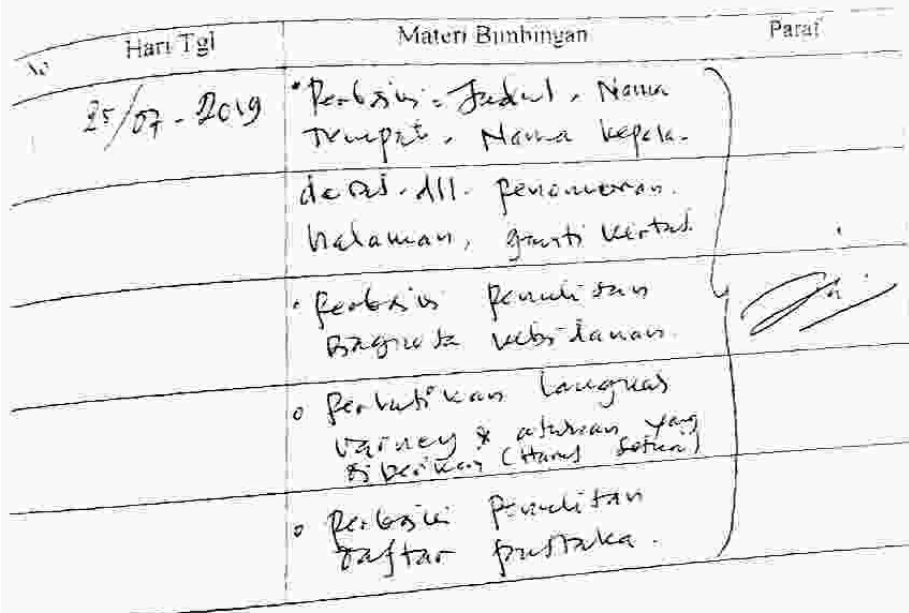 No Hari Tgl Materi Bimbingan Paraf
25/07-2019
• Perbaiki = Judul, Nama
Tempat, Nama kepala.
desa. dll. penomoran.
halaman, ganti kertas.
• Perbaiki penulisan
Diagnosa kebidanan.
• Perhatikan langkah
varney & aturan yang
diberikan (Harus sesuai)
• Perbaiki penulisan
Daftar pustaka.